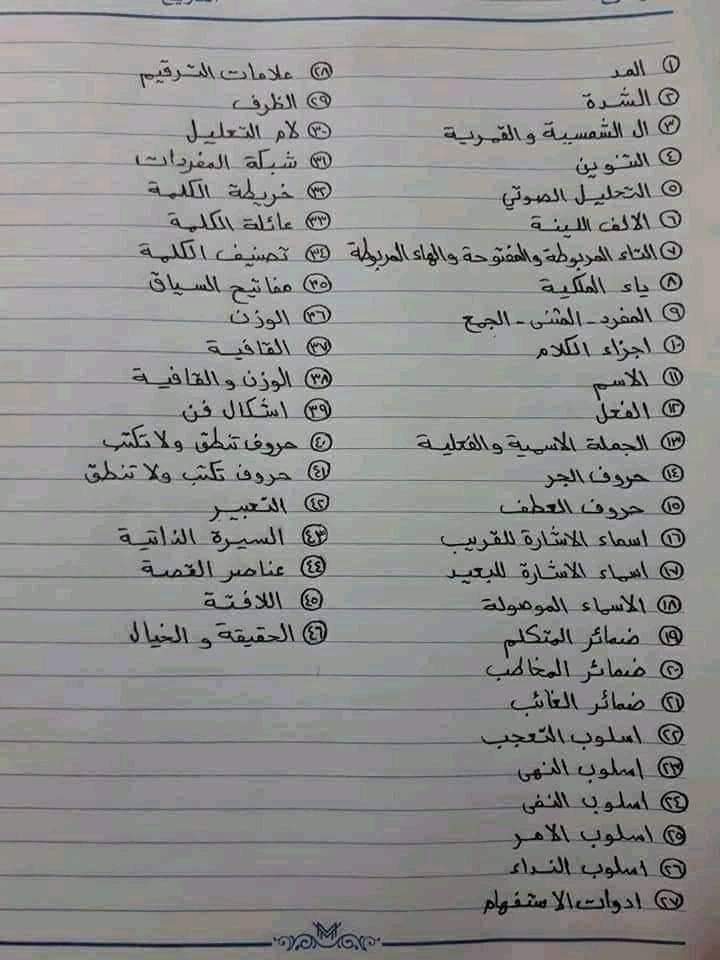 ١ المد
٢ الشدة
٣ ال الشمسية و القمرية
٤ التنوين
٥ التحليل الصوتي
٦ الالف اللينة
٧ التاء المربوطة والمفتوحة والهاء المربوطة
٨ ياء الملكية
٩ المفرد - المثنى - الجمع
١٠ اجزاء الكلام
١١ الاسم
١٢ الفعل
١٣ الجملة الاسمية والفعلية
١٤ حروف الجر
١٥ حروف العطف
١٦ اسماء الاشارة للقريب
١٧ اسماء الاشارة للبعيد
١٨ الاسماء الموصولة
١٩ ضمائر المتكلم
٢٠ ضمائر المخاطب
٢١ ضمائر الغائب
٢٢ اسلوب التعجب
٢٣ اسلوب النهى
٢٤ اسلوب النفى
٢٥ اسلوب الامر
٢٦ اسلوب النداء
٢٧ ادوات الاستفهام
٢٨ علامات الترقيم
٢٩ الظرف
٣٠ لام التعليل
٣١ شبكة المفردات
٣٢ خريطة الكلمة
٣٣ عائلة الكلمة
٣٤ تصنيف الكلمة
٣٥ مفاتيح السياق
٣٦ الوزن
٣٧ القافية
٣٨ الوزن و القافية
٣٩ اشكال فن
٤٠ حروف تنطق ولا تكتب
٤١ حروف تكتب ولا تنطق
٤٢ التعبير
٤٣ السيرة الذاتية
٤٤ عناصر القصة
٤٥ اللافتة
٤٦ الحقيقة و الخيال